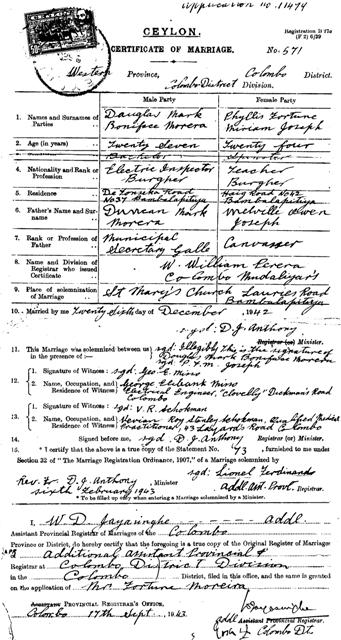 Application No. 11474
CEYLON.
Registration B 17a
(F 2) 6/29
CERTIFICATE OF MARRIAGE.
No. 571
Western Province, Colombo District.
Colombo District Division.
Male Party Female Party
1. Names and Surnames of Parties Douglas Mark Boniface Moreira Phyllis Fortune Miriam Joseph
2. Age (in years) Twenty Seven Twenty four
Bachelor Spinster
4. Nationality and Rank or Profession Electric Inspector Burgher Teacher Burgher
5. Residence De Fonseka Road No 37 Bambalapitiya Haig Road No 42 Bambalapitiya
6. Father's Name and Surname Duncan Mark Morera Melville Owen Joseph
7. Rank or Profession of Father Municipal Secretary Galle Canvasser
8. Name and Division of Registrar who issued Certificate W. William Perera Colombo Mudaliyars
9. Place of solemnization of Marriage St Mary's Church Lauries Road Bambalapitiya
10. Married by me Twenty sixth day of December, 1942
sgd. D. J. Anthony
Registrar (or) Minister.
11. This Marriage was solemnized between us in the presence of :— sgd: Illegibly This is the signature of Douglas Mark Boniface Moreira
sgd P. F. M. Joseph
1. Signature of Witness: sgd: Geo. E. Mino
12. Name, Occupation, and Residence of Witness: George Eubank Mino Electrical Engineer, "Clovelly" Dickman's Road Colombo
Signature of Witness: sgd: V. R. Schokman
13. Name, Occupation, and Residence of Witness: Vivian Roy Stanley Schokman, Qualified Medical Practitioner, Road Colombo
14. Signed before me, sgd. D. J. Anthony Registrar (or) Minister.
15. * I certify that the above is a true copy of the Statement No. 73, furnished to me under
Section 32 of "The Marriage Registration Ordinance, 1907," of a Marriage solemnized by
sgd: Lionel Ferdinando
Rev. Fr D. J. Anthony Addl. Asst. Provl. Registrar.
sixth February 1943
* To be filled up only when entering a Marriage solemnized by a Minister.
I, W. D. Jayasinghe addl
Assistant Provincial Registrar of Marriages of the Colombo
Province or District, do hereby certify that the foregoing is a true copy of the Original Register of Marriages
of Additional Assistant Provincial
Registrar at Colombo, District Division
in the Colombo District, filed in this office, and the same is granted
on the application of Mr. Fortune Moreira
ASSISTANT PROVINCIAL REGISTRAR'S OFFICE,
Colombo 17th Sept. 1943.
addl Assistant Provincial Registrar.
Colombo Dt.